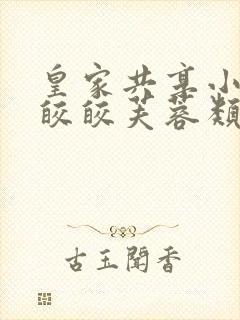 皇家共享小
皎皎芙蓉類
古玉聞香